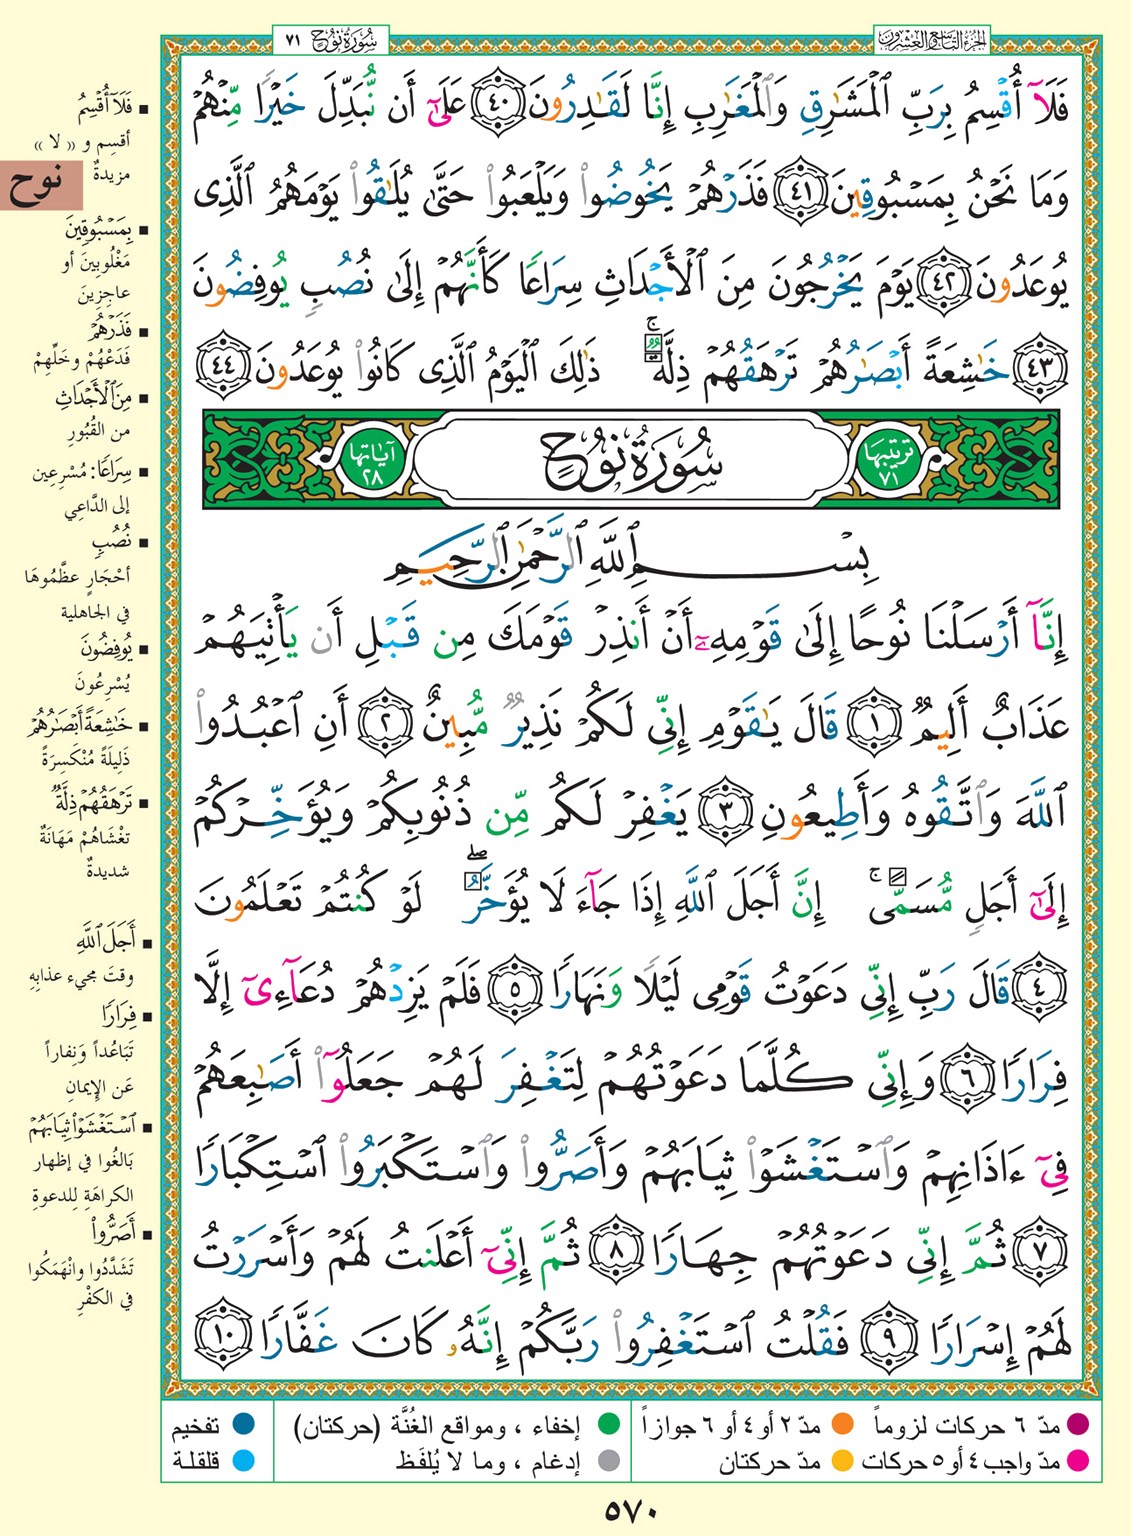 سُورَةُ نُوحٍ ٧١
الجُزءُ التَّاسِعُ وَالعِشْرُون
فَلَآ أُقْسِمُ بِرَبِّ ٱلْمَشَٰرِقِ وَٱلْمَغَٰرِبِ إِنَّا لَقَٰدِرُونَ ٤٠ عَلَىٰٓ أَن نُّبَدِّلَ خَيْرًا مِّنْهُمْ
وَمَا نَحْنُ بِمَسْبُوقِينَ ٤١ فَذَرْهُمْ يَخُوضُوا۟ وَيَلْعَبُوا۟ حَتَّىٰ يُلَٰقُوا۟ يَوْمَهُمُ ٱلَّذِى
يُوعَدُونَ ٤٢ يَوْمَ يَخْرُجُونَ مِنَ ٱلْأَجْدَاثِ سِرَاعًا كَأَنَّهُمْ إِلَىٰ نُصُبٍ يُوفِضُونَ
٤٣ خَٰشِعَةً أَبْصَٰرُهُمْ تَرْهَقُهُمْ ذِلَّةٌ ۚ ذَٰلِكَ ٱلْيَوْمُ ٱلَّذِى كَانُوا۟ يُوعَدُونَ ٤٤
ترتيبها ٧١ سُورَةُ نُوحٍ آياتها ٢٨
بِسْمِ ٱللَّهِ ٱلرَّحْمَٰنِ ٱلرَّحِيمِ
إِنَّآ أَرْسَلْنَا نُوحًا إِلَىٰ قَوْمِهِۦٓ أَنْ أَنذِرْ قَوْمَكَ مِن قَبْلِ أَن يَأْتِيَهُمْ
عَذَابٌ أَلِيمٌ ١ قَالَ يَٰقَوْمِ إِنِّى لَكُمْ نَذِيرٌ مُّبِينٌ ٢ أَنِ ٱعْبُدُوا۟
ٱللَّهَ وَٱتَّقُوهُ وَأَطِيعُونِ ٣ يَغْفِرْ لَكُم مِّن ذُنُوبِكُمْ وَيُؤَخِّرْكُمْ
إِلَىٰٓ أَجَلٍ مُّسَمًّى ۚ إِنَّ أَجَلَ ٱللَّهِ إِذَا جَآءَ لَا يُؤَخَّرُ ۖ لَوْ كُنتُمْ تَعْلَمُونَ
٤ قَالَ رَبِّ إِنِّى دَعَوْتُ قَوْمِى لَيْلًا وَنَهَارًا ٥ فَلَمْ يَزِدْهُمْ دُعَآءِىٓ إِلَّا
فِرَارًا ٦ وَإِنِّى كُلَّمَا دَعَوْتُهُمْ لِتَغْفِرَ لَهُمْ جَعَلُوٓا۟ أَصَٰبِعَهُمْ
فِىٓ ءَاذَانِهِمْ وَٱسْتَغْشَوْا۟ ثِيَابَهُمْ وَأَصَرُّوا۟ وَٱسْتَكْبَرُوا۟ ٱسْتِكْبَارًا
٧ ثُمَّ إِنِّى دَعَوْتُهُمْ جِهَارًا ٨ ثُمَّ إِنِّىٓ أَعْلَنتُ لَهُمْ وَأَسْرَرْتُ
لَهُمْ إِسْرَارًا ٩ فَقُلْتُ ٱسْتَغْفِرُوا۟ رَبَّكُمْ إِنَّهُۥ كَانَ غَفَّارًا ١٠
▪ فَلَآ أُقْسِمُ
أقسِم و «لا»
مزيدةٌ
نوح
▪ بِمَسْبُوقِينَ
مَغْلُوبِينَ أو
عاجِزِينَ
▪ فَذَرْهُمْ
فَدَعْهُمْ وخَلِّهِمْ
▪ مِنَ ٱلْأَجْدَاثِ
من القُبُورِ
▪ سِرَاعًا: مُسْرِعِين
إلى الدَّاعِي
▪ نُصُبٍ
أحْجَارٍ عظَّمُوهَا
في الجاهلية
▪ يُوفِضُونَ
يُسْرِعُونَ
▪ خَٰشِعَةً أَبْصَٰرُهُمْ
ذَلِيلَةً مُنْكَسِرَةً
▪ تَرْهَقُهُمْ ذِلَّةٌ
تغْشَاهُمْ مَهَانَةٌ
شديدةٌ
▪ أَجَلَ ٱللَّهِ
وقتَ مجيء عذابِهِ
▪ فِرَارًا
تَبَاعُداً وَنِفاراً
عَن الإيمانِ
▪ ٱسْتَغْشَوْا۟ ثِيَابَهُمْ
بَالغُوا في إظهار
الكراهَةِ لِلدعوةِ
▪ أَصَرُّوا۟
تَشَدَّدُوا وانْهَمَكُوا
في الكفْرِ
مدّ ٦ حركات لزوماً مدّ ٢ أو ٤ أو ٦ جوازاً إخفاء ، ومواقع الغُنَّة (حركتان) تفخيم
مدّ واجب ٤ أو ٥ حركات مدّ حركتان إدغام ، وما لا يُلفَظ قلقلة
٥٧٠